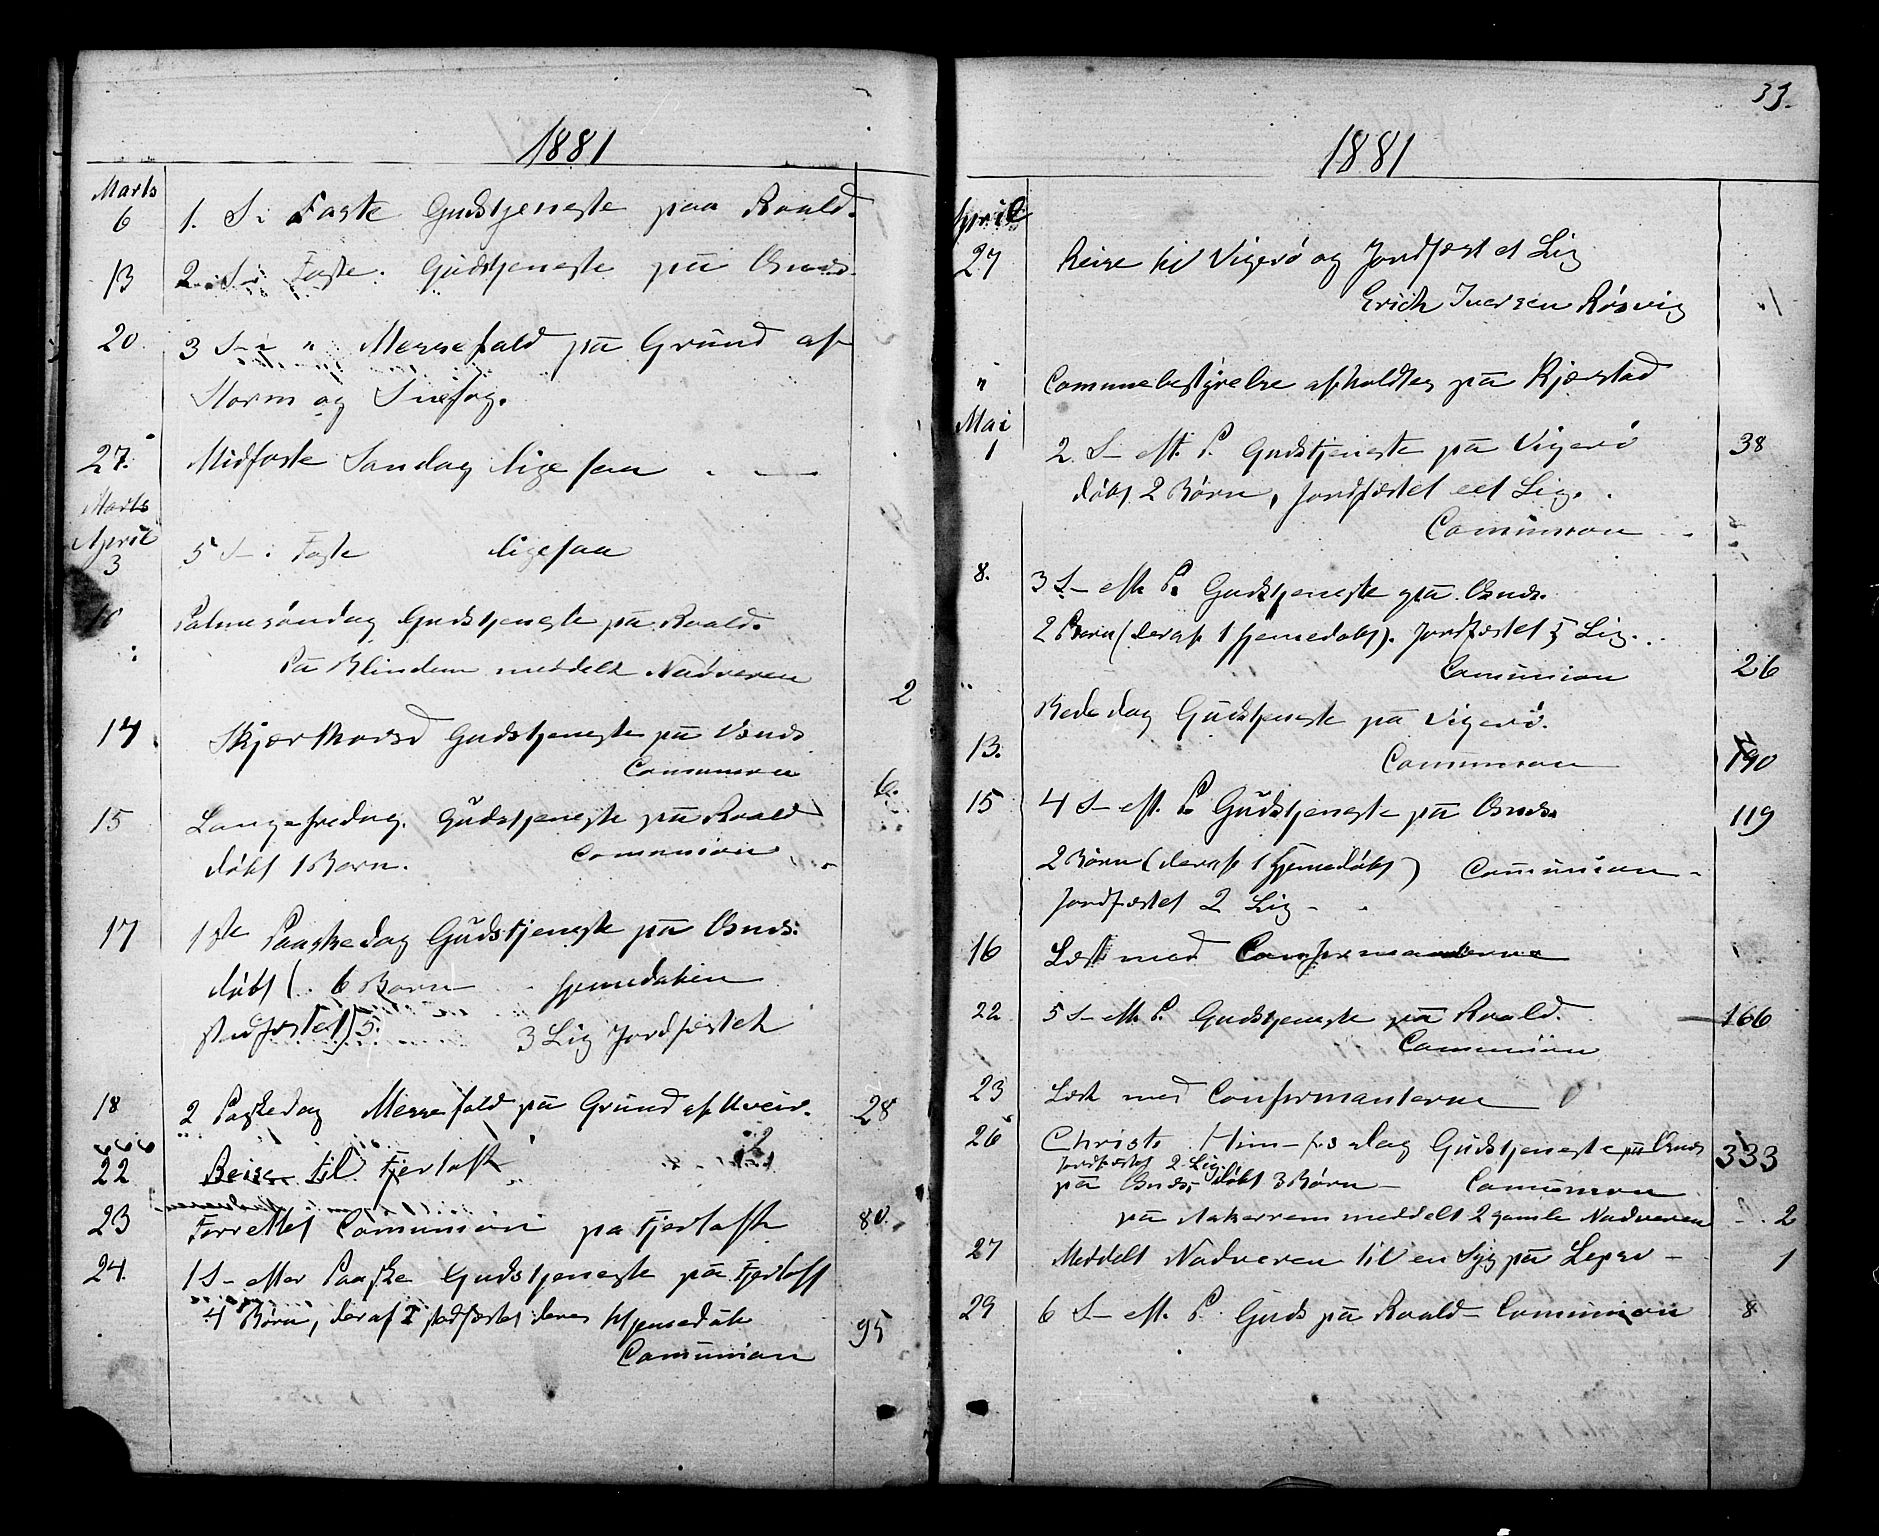 1881
Marts
6 1. S. i Faste Gudstjeneste paa Roald.
13 2 S. i Faste. Gudstjeneste på Osnæs.
20 3 S. i " Messefald på Grund af
Storm og Snefog.
27. Midfaste Søndag lige saa
Marts
April
3 5 S. i Faste ligesaa
10 Palmesøndag Gudstjeneste på Roald.
På Blindem meddelt Nadveren 2
14 Skjærthorsd Gudstjeneste på Osnæs
Comunion 6.
15 Langefredag. Gudstjeneste på Roald
døbt 1 Barn. Comunion
17 1ste Paaskedag Gudstjeneste på Osnæs:
døbt (. 6 Børn hjemedøbte
stadfæstet) 5. 3 Lig Jordfæstet
18 2 Paaskedag Messefald på Grund af Uveir. 28
22 Reise til Fjertoft
23 Forrettet Comunion pa Fjertoft 80.
24. 1 S. efter Paaske Gudstjeneste på Fjertoft
4 Børn, deraf 2 stadfæstet deres Hjemedåb
Comunion 95
33.
1881
April
27 Reise til Vigerö og Jordfæstet Lig
Erich Iversen Røsvig
" Comunebestyrelse afholdtes på Kjerstad
Mai
1 2 S. eft. P. Gudstjeneste på Vigerö 38
døbt 2 Børn, jordfæstet eet Lig.
Comunion
8. 3 S. eft. P. Gudstjeneste på Osnæs.
2 Børn (deraf 1 hjemedøbt). Jordfæstet 5 Lig.
Comunion 26
Bededag Gudstjeneste på Vigerö.
13. Comunion 190
15 4 S. eft. P. Gudstjeneste på Osnæs. 119
2 Børn (deraf 1 hjemedøbt) Comunion
Jordfæstet 2 Lig
16 Læst med Confirmanterne
22 5 S. eft. P. Gudstjeneste på Roald. 166
Comunion
23 Læst med Confirmanterne
26 Christi Him-f-s dag Gudstjeneste på Osnæs 333
Jordfæstet 2 Lig
på Osnæs, døbt 3 Børn Comunion
på Aakerrem meddelt 2 gamle Nadveren 2
27 Meddelt Nadveren til en Syg på Lepsø 1
29 6 S. eft. P. Guds på Roald Comunion 8